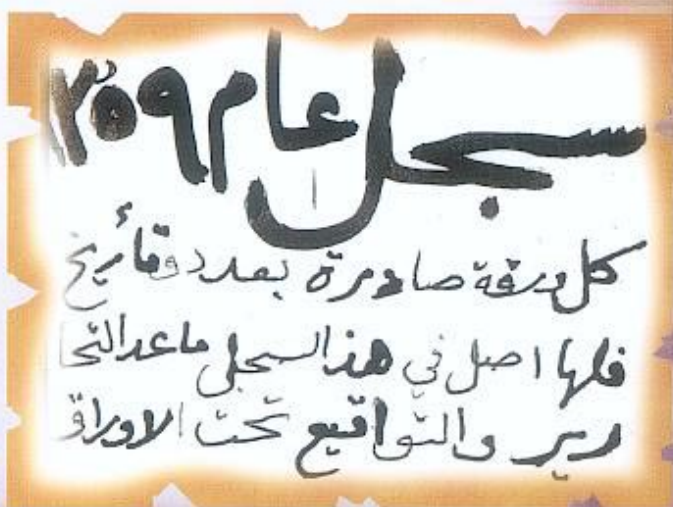 سجل عام ١٣٥٩
كل ورقة صادرة بعدد وتأريخ
فلها اصل في هذا السجل ماعدا التحا
رير والتواقيع تحت الاوراق